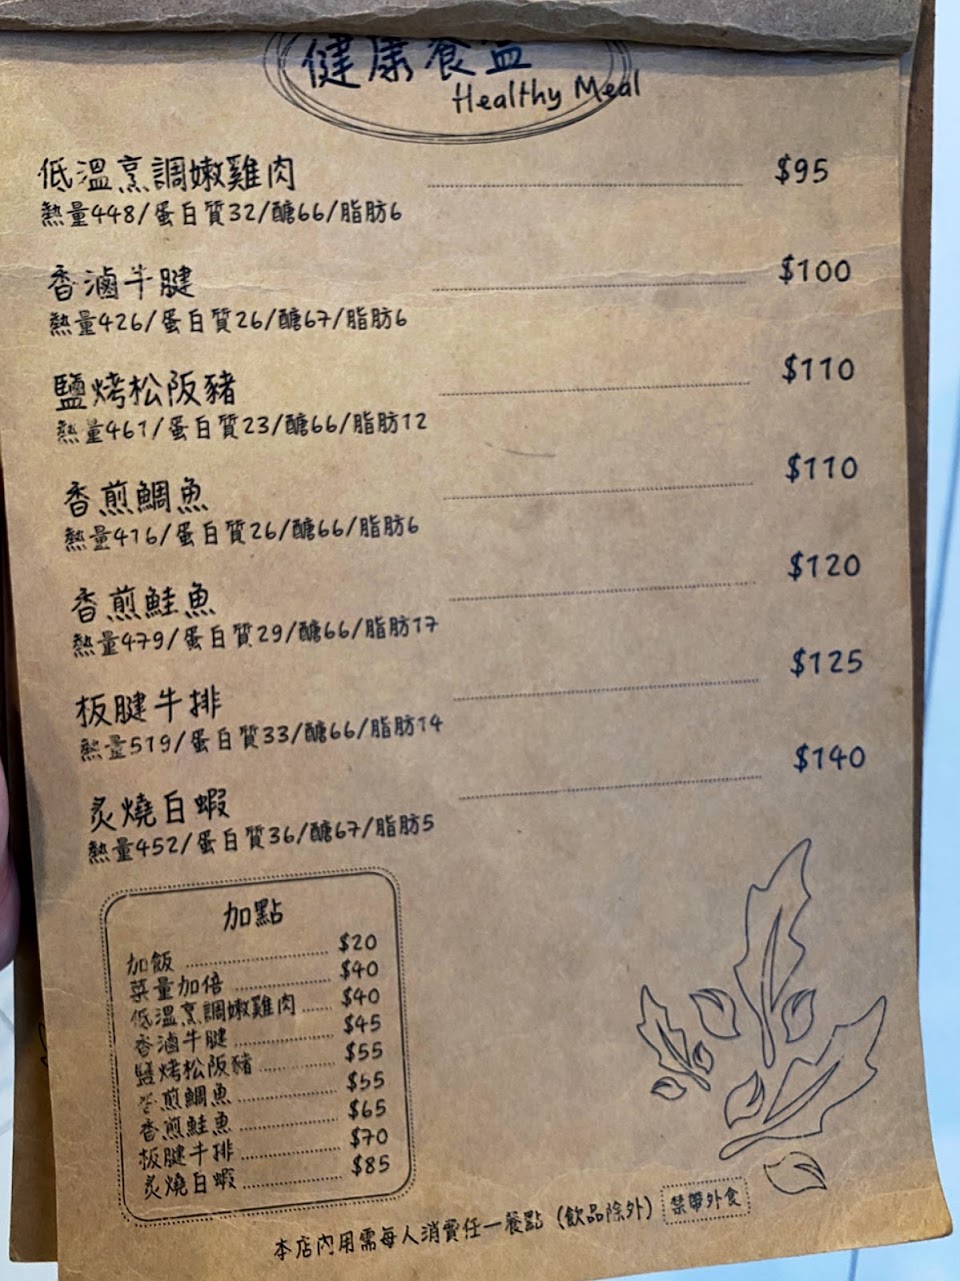 健康餐盒
Healthy Meal
低溫烹調嫩雞肉 $95
熱量448/蛋白質32/醣66/脂肪6
香滷牛腱 $100
熱量426/蛋白質26/醣67/脂肪6
鹽烤松阪豬 $110
熱量461/蛋白質23/醣66/脂肪12
香煎鯛魚 $110
熱量416/蛋白質26/醣66/脂肪6
香煎鮭魚 $120
熱量479/蛋白質29/醣66/脂肪17
板腱牛排 $125
熱量519/蛋白質33/醣66/脂肪14
炙燒白蝦 $140
熱量452/蛋白質36/醣67/脂肪5
加點
加飯 $20
菜量加倍 $40
低溫烹調嫩雞肉 $40
香滷牛腱 $45
鹽烤松阪豬 $55
香煎鯛魚 $55
香煎鮭魚 $65
板腱牛排 $70
炙燒白蝦 $85
本店內用需每人消費任一餐點（飲品除外） 禁帶外食